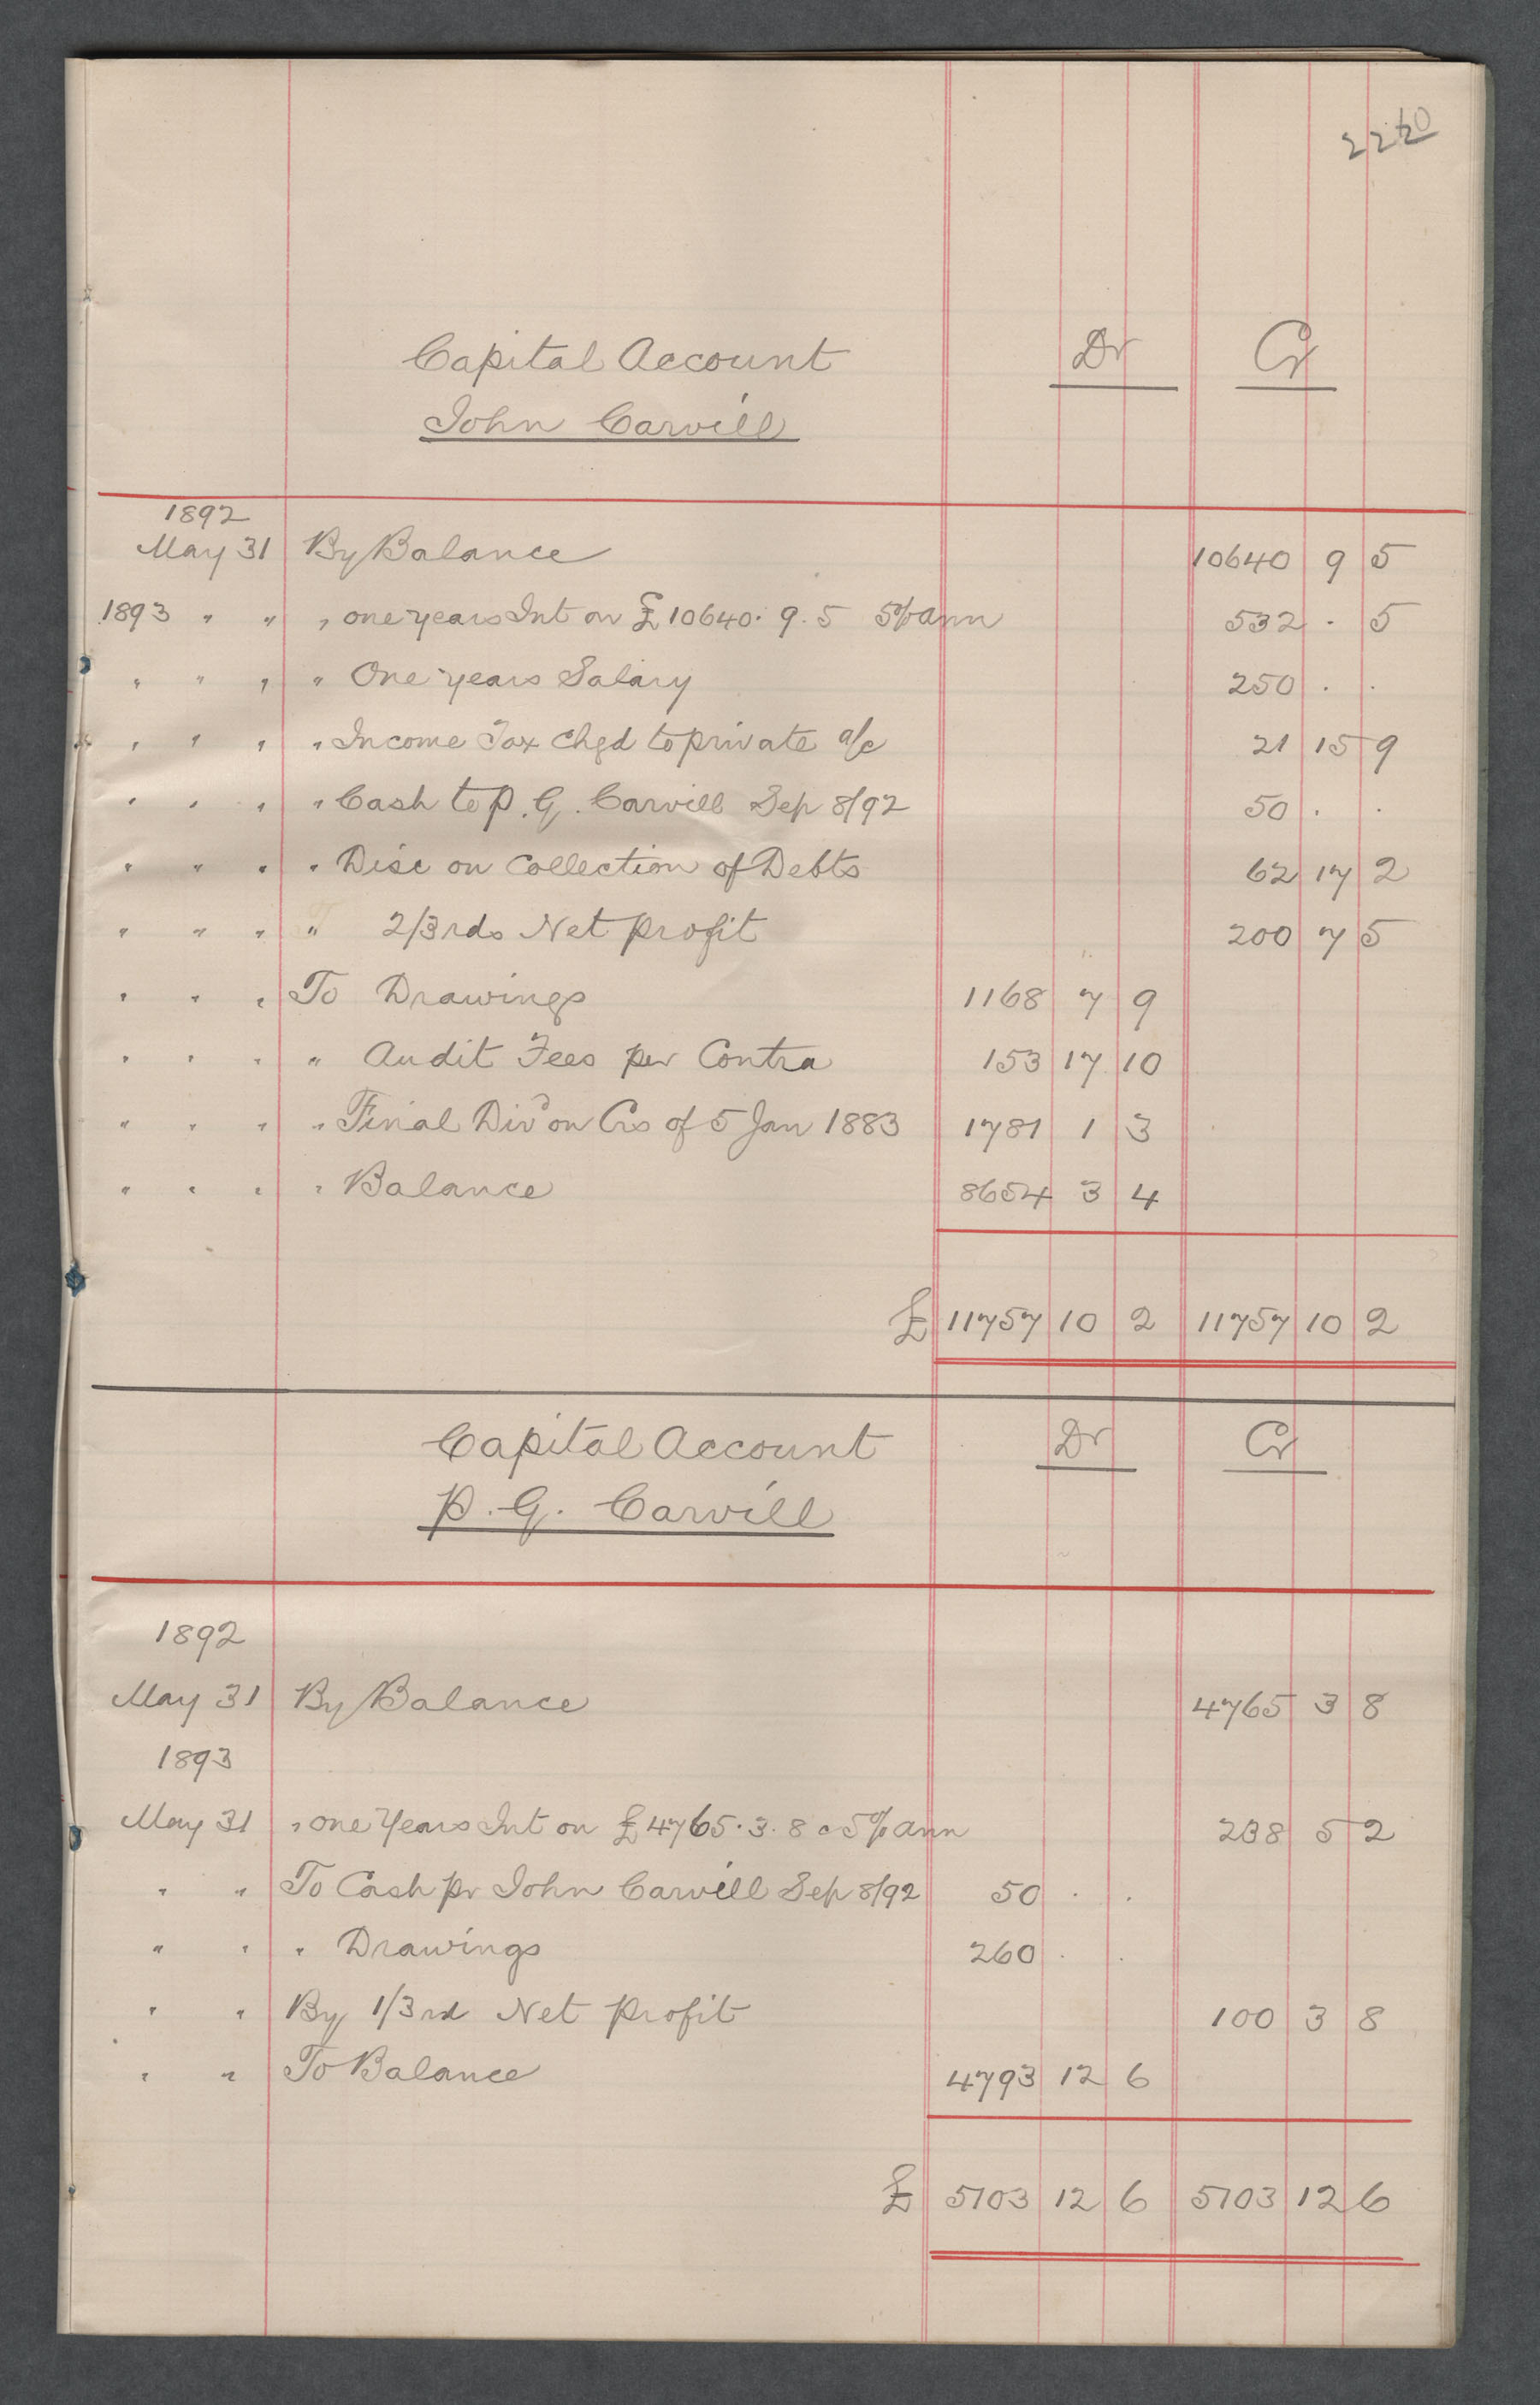 Capital Account Dr Cr
John Carvill
1892
May 31 By Balance 10640 9 5
1893 " " " one years Int on £10640. 9. 5 5% ann 532 . 5
" " " " One years Salary 250 . .
" " " " Income Tax chgd to private a/c 21 15 9
" " " " Cash to P. G. Carvill Sep 8/92 50 . .
" " " " Disc on Collection of Debts 62 17 2
" " " " 2/3rds Net profit 200 7 5
" " " To Drawings 1168 7 9
" " " " Audit Fees per Contra 153 17 10
" " " " Final Divd on Crs of 5 Jan 1883 1781 1 3
" " " " Balance 8654 3 4
£ 11757 10 2 11757 10 2
Capital Account Dr Cr
P. G. Carvill
1892
May 31 By Balance 4765 3 8
1893
May 31 " one Years Int on £4765. 3. 8 @ 5% ann 238 5 2
" " To Cash pr John Carvill Sep 8/92 50 . .
" " " Drawings 260 . .
" " By 1/3rd Net profit 100 3 8
" " To Balance 4793 12 6
£ 5103 12 6 5103 12 6